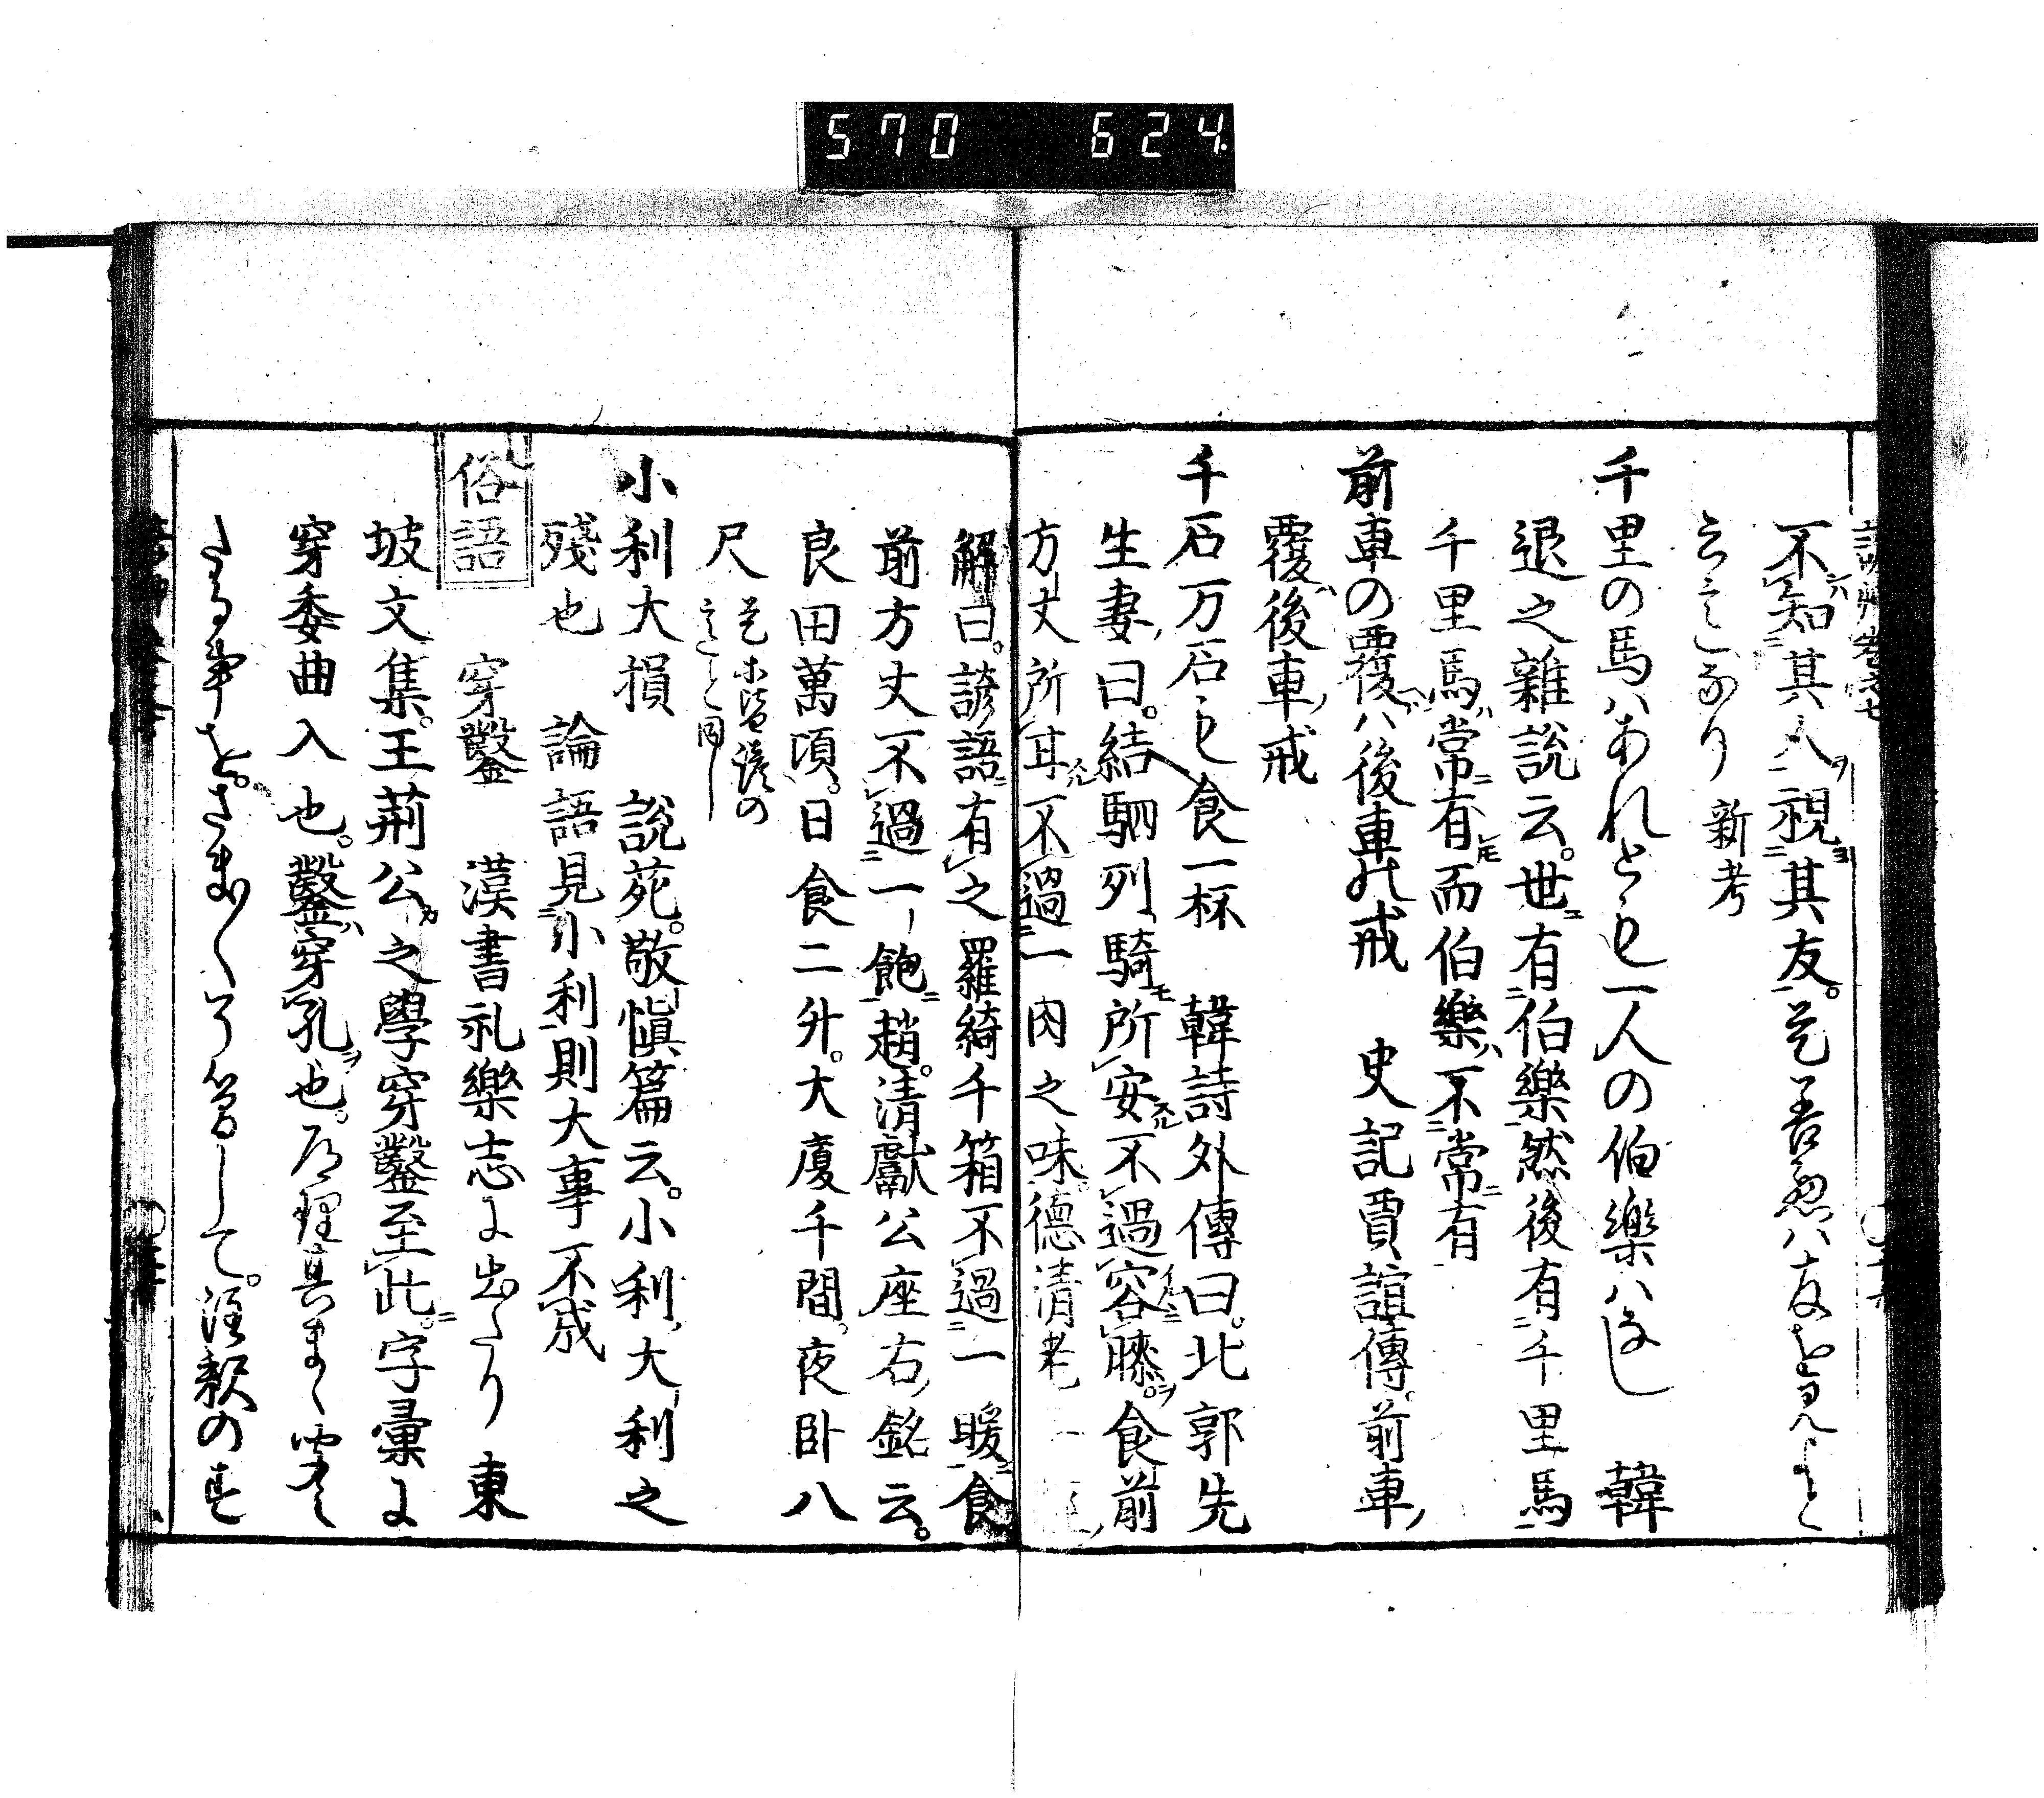 570 624
不知其人視其友。是善悪ハ友を見よと
云こゝろなり 新考
千里の馬ハあれとも一人の伯樂ハなし 韓
退之雜説云。世有伯樂然後有千里馬
千里馬常有而伯樂不常有
前車の覆ハ後車の戒 史記賈誼傳。前車
覆後車戒
千石万石も食一杯 韓詩外傳曰。北郭先
生妻曰。結駟列騎所安不過容膝。食前
方丈所甘不過一肉之味。德清老
解曰。諺語有之羅綺千箱不過一暖食
前方丈不過一飽趙。清獻公座右銘云。
良田萬頃。日食二升。大廈千間。夜卧八
尺 是等皆諺の
意と同し
小利大損 説苑。敬愼篇云。小利大利之
殘也 論語見小利則大事不成
俗語 穿鑿 漢書礼樂志に出たり東
坡文集。王荊公之學穿鑿至此。字彙に
穿委曲入也。鑿穿孔也。道理其まゝ
たる事を。さま〱了簡して。注釈のす